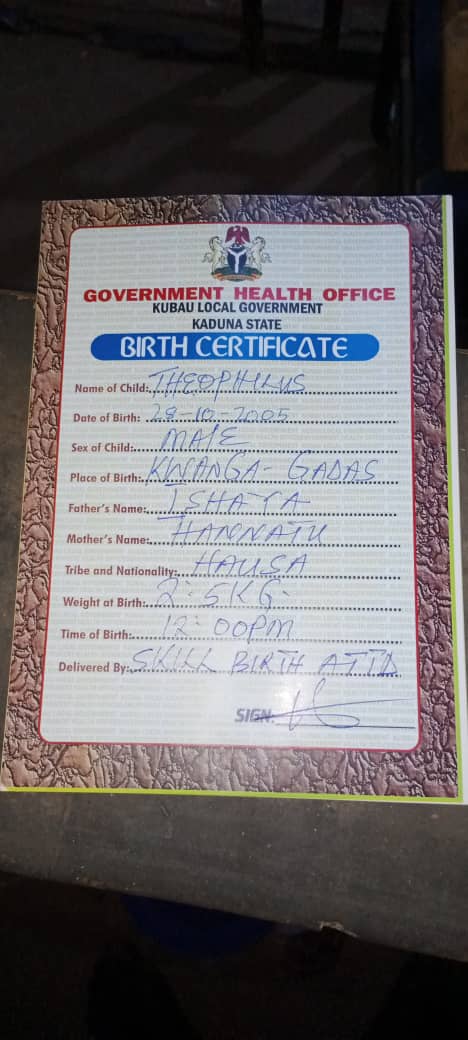 GOVERNMENT HEALTH OFFICE
KUBAU LOCAL GOVERNMENT
KADUNA STATE
BIRTH CERTIFICATE
Name of Child: THEOPHILUS
Date of Birth: 29-10-2005
Sex of Child: MALE
Place of Birth: KWANGA- GADAS
Father's Name: ISHAYA
Mother's Name: HANNATU
Tribe and Nationality: HAUSA
Weight at Birth: 2.5KG.
Time of Birth: 12:00PM
Delivered By: SKILL BIRTH ATTD
SIGN: